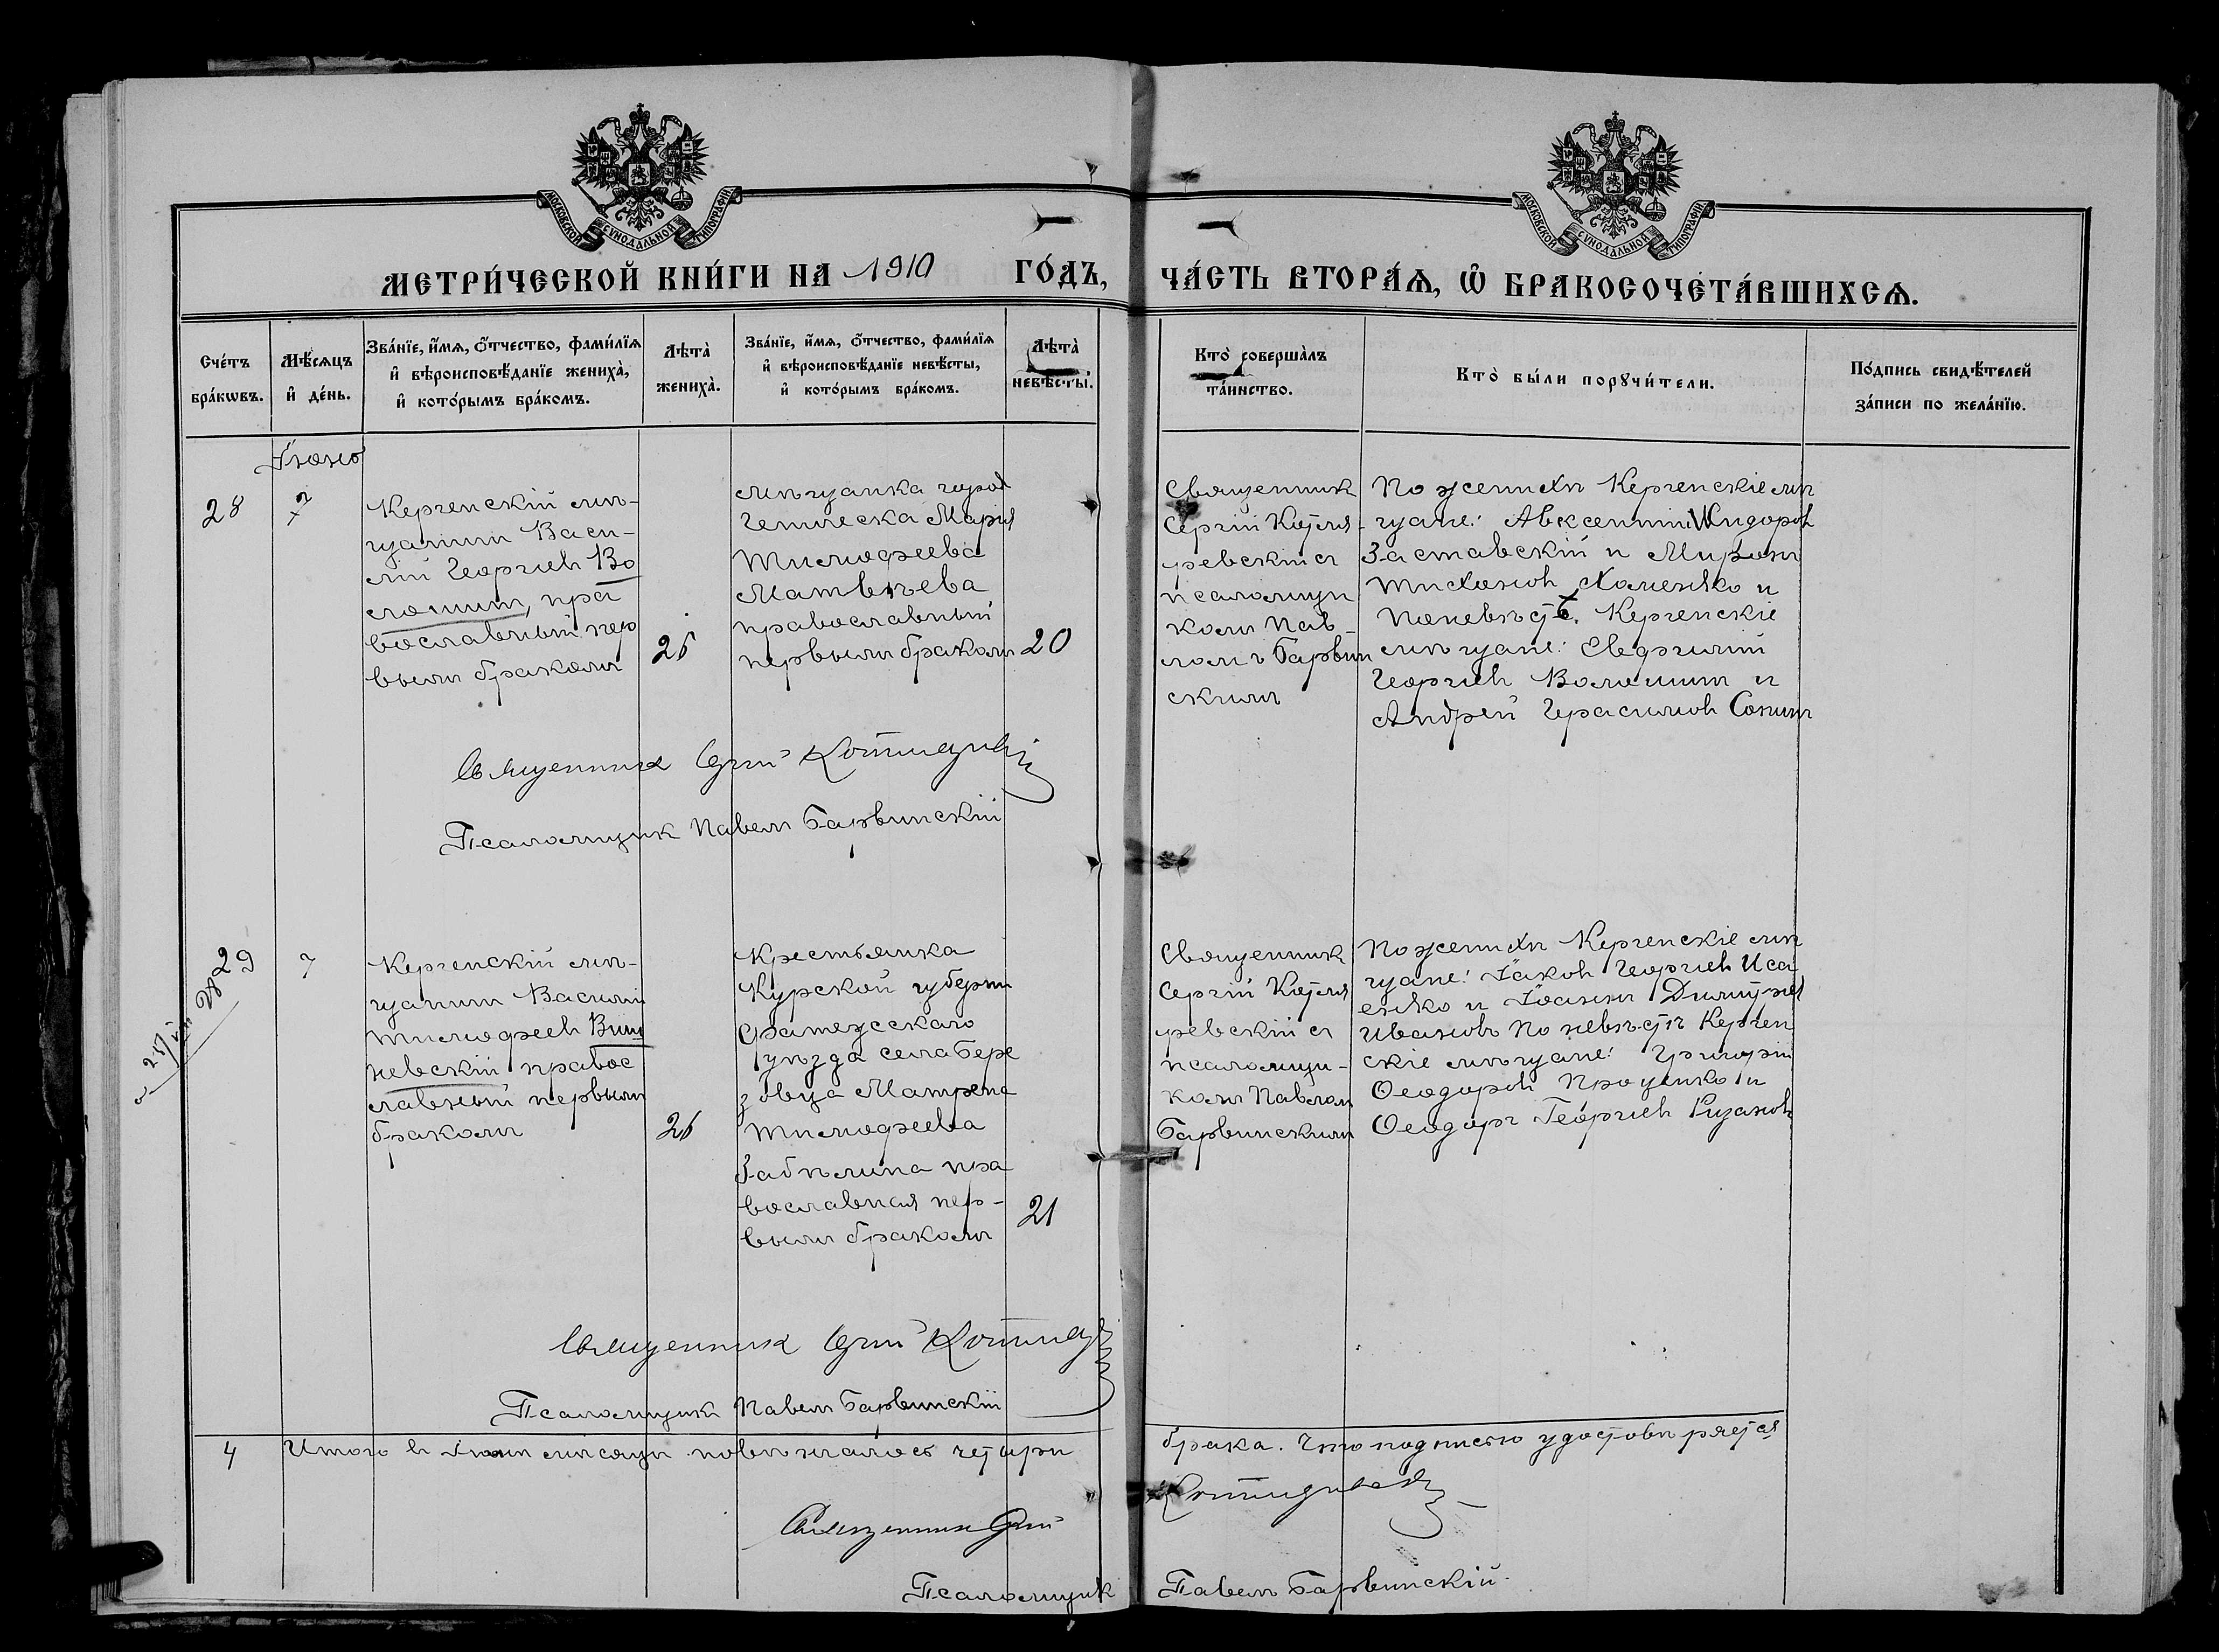 МОСКОВСКОЙ СУНОДАЛЬНОЙ ТИПОГРАФІИ
МОСКОВСКОЙ СУНОДАЛЬНОЙ ТИПОГРАФІИ
МЕТРИ́ЧЕСКОЙ КНИ́ГИ НА 1910 ГО́ДЪ,
ЧА́СТЬ ВТОРА́Ѧ, Ѽ БРАКОСОЧЕТА́ВШИХСѦ.
Сче́тъ
бра́кѡвъ.
Мѣ́сѧцъ
и҆ де́нь.
Зва́нїе, и҆́мѧ, ѻ҆́тчество, фами́лїѧ
и҆ вѣроисповѣ́данїе жениха̀,
и҆ кото́рымъ бра́комъ.
Лѣта̀
жениха̀.
Зва́нїе, и҆́мѧ, ѻ҆́тчество, фами́лїѧ
и҆ вѣроисповѣ́данїе невѣ́сты,
и҆ кото́рымъ бра́комъ.
Лѣта̀
невѣ́сты.
Кто̀ соверша̀лъ
та́инство.
Кто̀ бы́ли порꙋчи́тели.
По́дпись свидѣ́телей
за́писи по жела́нїю.
Іюнь
28
7
Керченскій мѣ-
щанинъ Васи-
лій Георгіевъ Во
лошинъ, пра
вославный пер
вымъ бракомъ
25
Мѣщанка город
Геническа Марія
Тимофеева
Матвѣева
православный
первымъ бракомъ
20
Священникъ
Сергій Котля-
ревскій съ
псаломщи
комъ Пав-
ломъ Барвин
скимъ
По женихѣ Керченскіе мѣ
щане: Авксентій Исидоровъ
Заставскій и Миронъ
Тихоновъ Хоменко и
По невѣстѣ. Керченскіе
мѣщане: Евфимій
Георгіевъ Волошинъ и
Андрей Герасимовъ Сокинъ
Священникъ Сергій
Псаломщикъ Павелъ Барвинскій
29
7
Керченскій мѣ-
щанинъ Василій
Тимофеевъ Виш
невскій правос
лавный первымъ
бракомъ
26
Крестьянка
Курской губерніи
Фатежскаго
уѣзда села Бере
зовца Матрена
Тимофеева
Забѣлина пра
вославная пер-
вымъ бракомъ
21
Священникъ
Сергій Котля
ревскій съ
псаломщи-
комъ Павломъ
Барвинскимъ
По женихѣ Керченскіе мѣ
щане: Іаковъ Георгіевъ Иса
енко и Іоаннъ Димитріев
Ивановъ По невѣстѣ Керчен
скіе мѣщане: Григорій
Ѳеодоровъ Проценко и
Ѳеодоръ Георгіевъ Рязановъ
Священникъ Сергій
Псаломщикъ Павелъ Барвинскій
4 Итого въ Іюнѣ мѣсяцѣ повѣнчалось четыри
брака. Что подписью удостовѣряется
Священникъ Сергій
Псаломщикъ Павелъ Барвинскій.